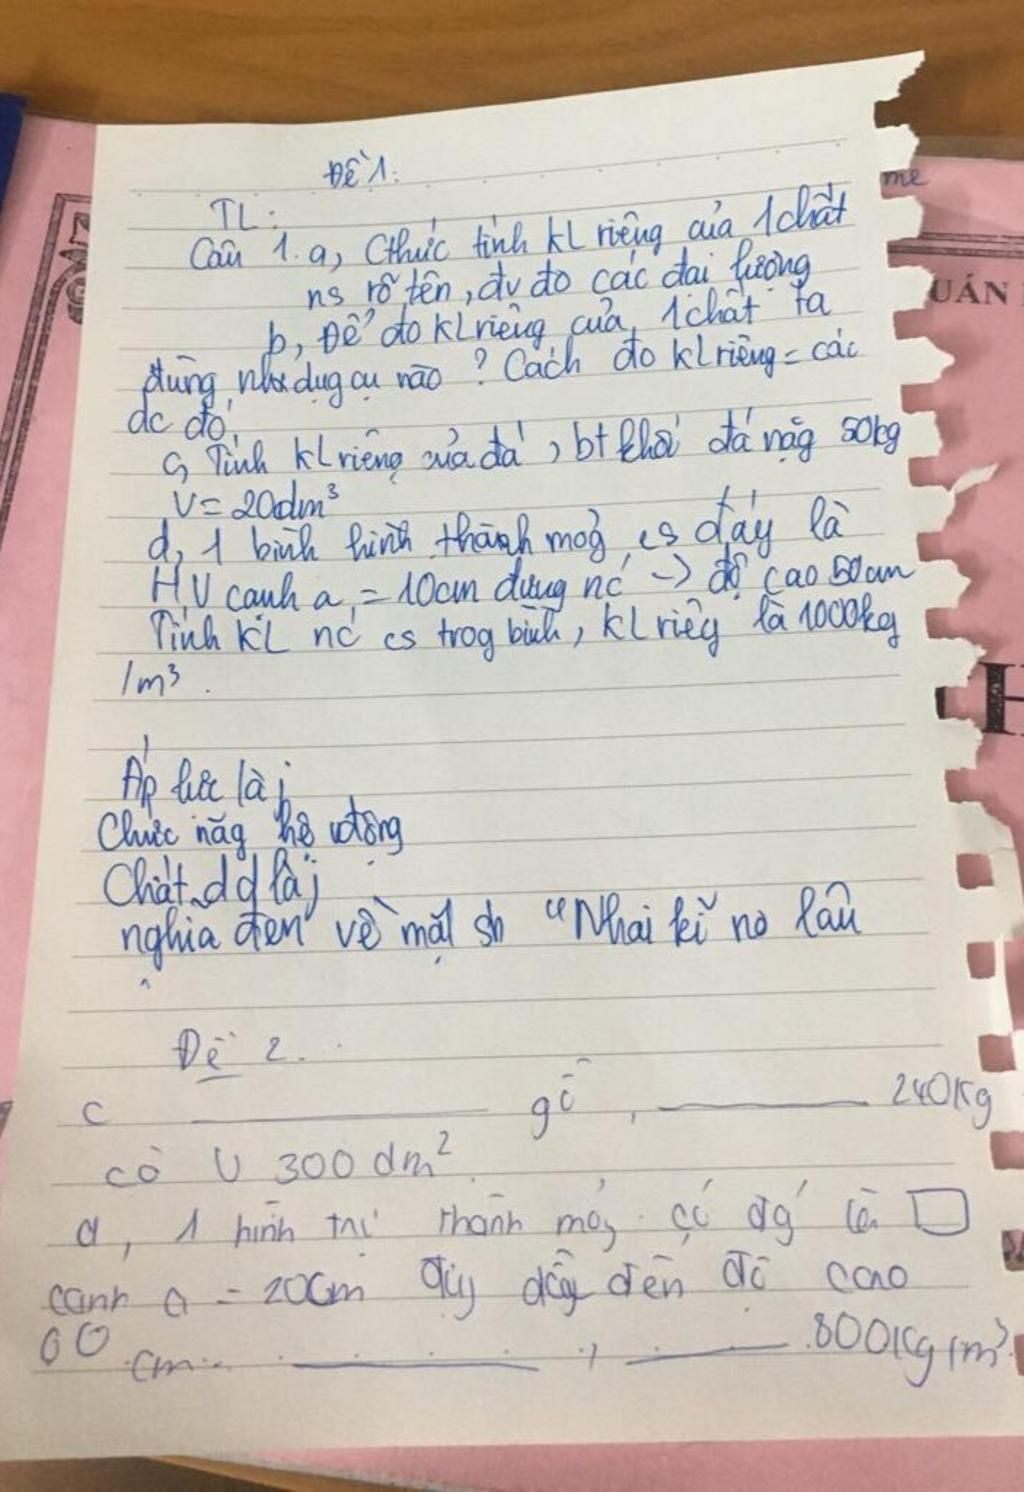 Đề 1:
TL:
Câu 1. a, Cthức tính KL riêng của 1 chất
ns rõ tên, đv đo các đai lượng
b, Để đo KL riêng của 1 chất ta
dùng dụg cụ nào ? Cách đo KL riêng = các
dc đó
c, Tính KL riêng của đá, bt khối đá nặg 50kg
V = 20dm³
d, 1 bình hình thành mog cs đáy là
H.V canh a = 10cm đựng nc → độ cao 50cm
Tính KL nc cs trog bình, KL riêg là 1000kg
/m³.
me
UÁN
H
Áp lực là j
Chức năg hệ vđộng
Chất dd là j
nghĩa đen về mặt sh "Nhai kĩ no lâu
Đề 2.
c ______ gỗ, ______ 240Kg
có V 300 dm²
d, 1 hình trụ thành mỏg có là □
canh a = 20cm đến độ cao
60 cm ______, ______ 800Kg/m³.